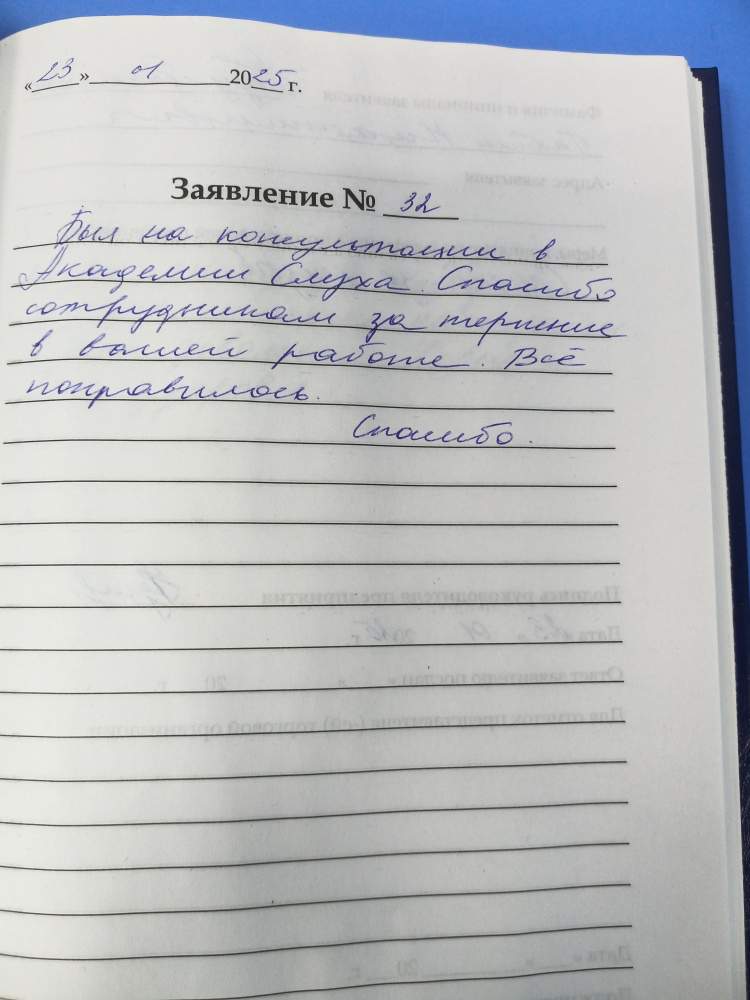 «23» 01 2025 г.
Заявление № 32
Был на консультации в
Академии Слуха. Спасибо
сотрудникам за терпение
в вашей работе. Всё
понравилось.
Спасибо.